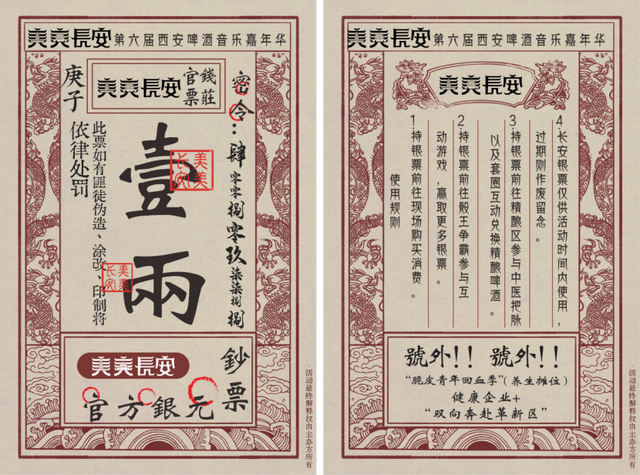 美美長安 第六届西安啤酒音乐嘉年华
美美長安
錢莊
官票
庚子
密令：肆零零捌零玖柒柒捌捌
壹兩
美美长安
美美长安
此票如有匪徒伪造、涂改、印制将
依律处罚
美美長安
鈔票
官方銀元
活动最终解释权由主办方所有
美美長安 第六届西安啤酒音乐嘉年华
美美長安
使用规则
1.持银票前往现场购买消费。
2.持银票前往骰王争霸参与互
动游戏，赢取更多银票。
3.持银票前往精酿区参与中医把脉
以及套圈互动兑换精酿啤酒。
4.长安银票仅供活动时间内使用，
过期则作废留念。
號外!! 號外!!
“脆皮青年回血季”(养生摊位)
健康企业+
“双向奔赴革新区”
活动最终解释权由主办方所有